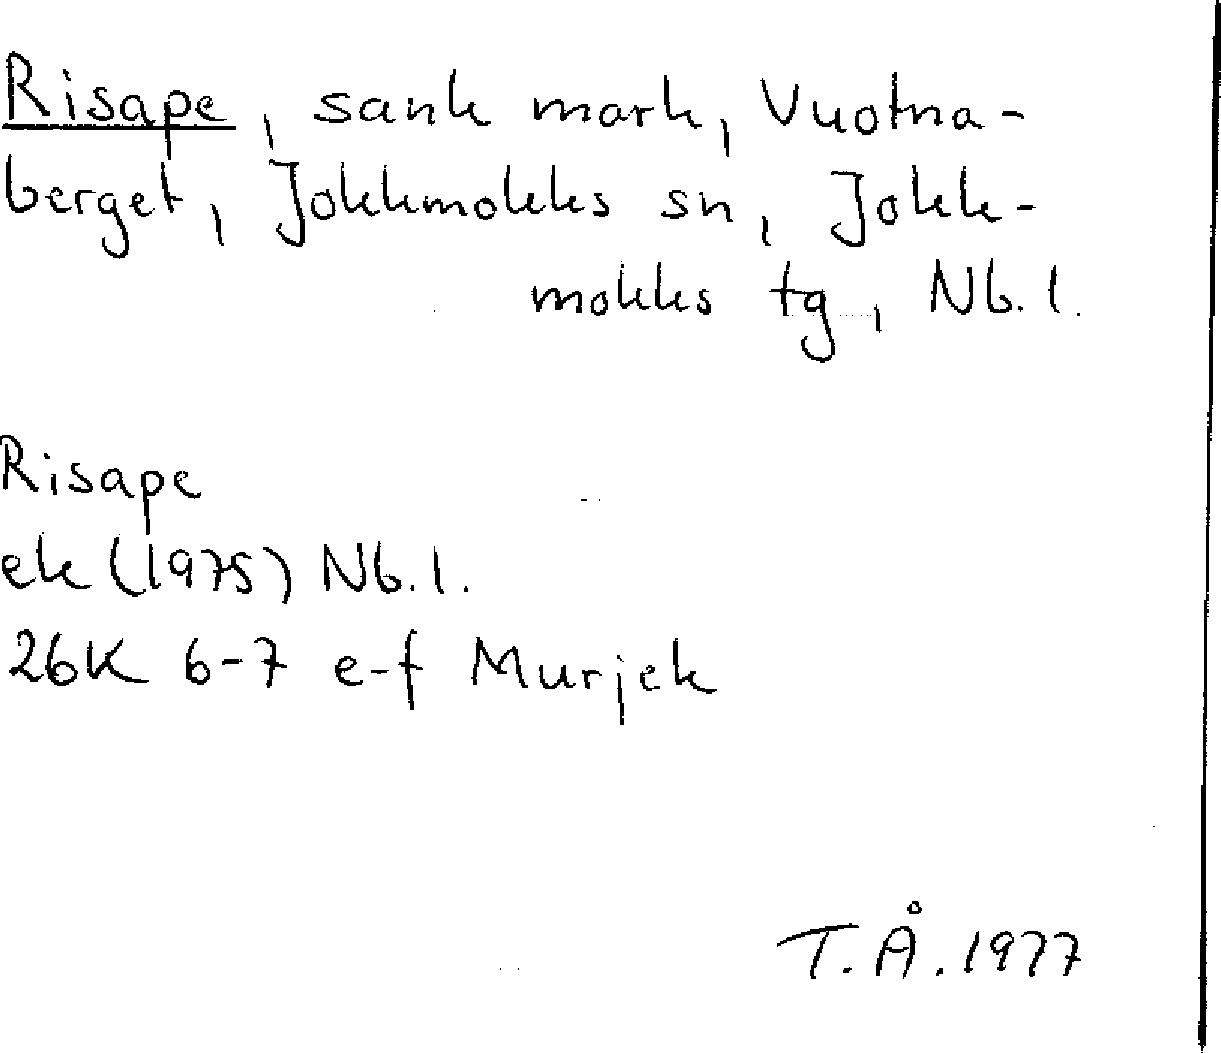 Risape, sank mark, Vuotna-
berget, Jokkmokks sn, Jokk-
mokks tg, Nb. l.
Risape
ek (1975) Nb. l.
26K 6-7 e-f Murjek
T.Å. 1977